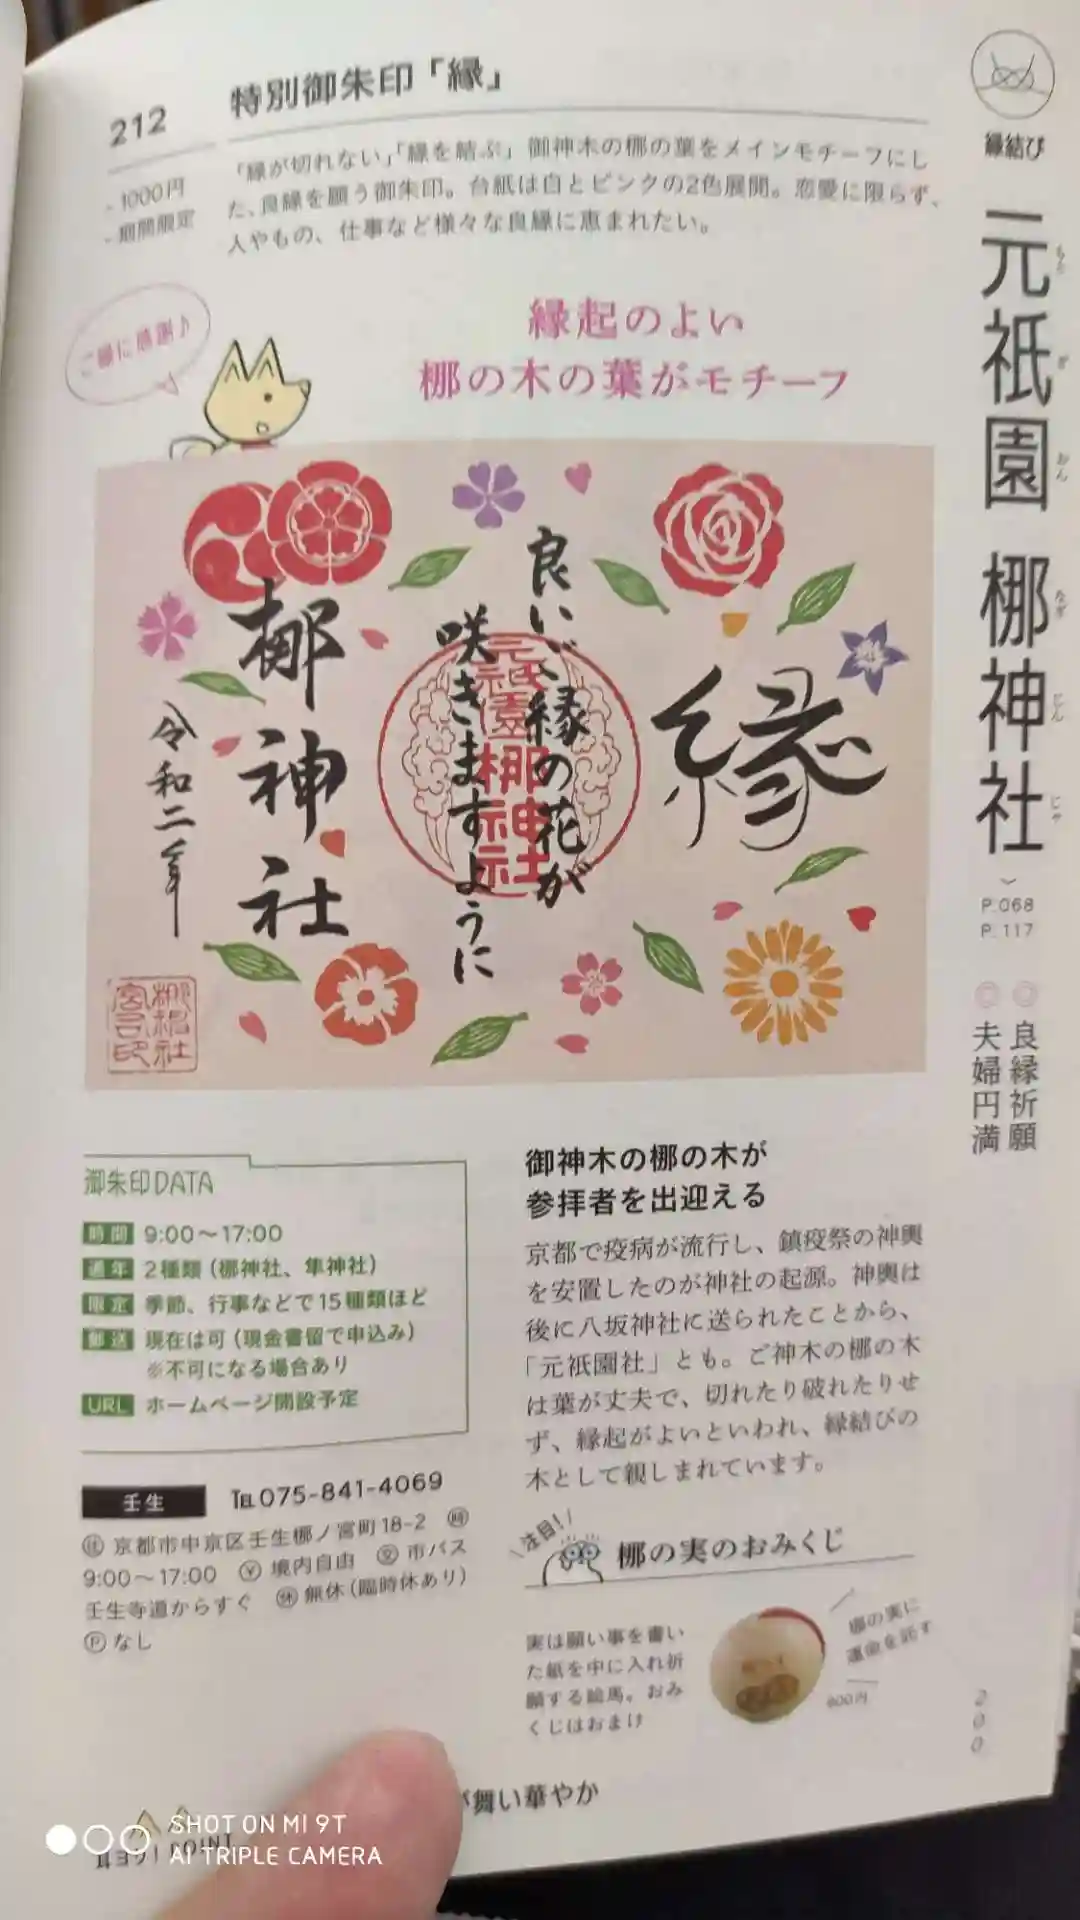 212
特別御朱印「縁」
- 1000円
- 期間限定
「縁が切れない」「縁を結ぶ」御神木の梛の葉をメインモチーフにし
た、良縁を願う御朱印。台紙は白とピンクの2色展開。恋愛に限らず、
人やもの、仕事など様々な良縁に恵まれたい。
縁結び
元祇園 梛神社
もと ぎ おん なぎ じん じゃ
P.068
P.117
◎良縁祈願
◎夫婦円満
ご縁に感謝♪
縁起のよい
梛の木の葉がモチーフ
縁
良いご縁の花が
咲きますように
元祇園
梛神社
梛神社
令和二年
御朱印DATA
時間 9:00〜17:00
通年 2種類(梛神社、隼神社)
限定 季節、行事などで15種類ほど
郵送 現在は可(現金書留で申込み)
※不可になる場合あり
URL ホームページ開設予定
壬生 TEL 075-841-4069
住 京都市中京区壬生梛ノ宮町18-2 時
9:00〜17:00 ¥ 境内自由 交 市バス
壬生寺道からすぐ 休 無休(臨時休あり)
P なし
御神木の梛の木が
参拝者を出迎える
京都で疫病が流行し、鎮疫祭の神輿
を安置したのが神社の起源。神輿は
後に八坂神社に送られたことから、
「元祇園社」とも。ご神木の梛の木
は葉が丈夫で、切れたり破れたりせ
ず、縁起がよいといわれ、縁結びの
木として親しまれています。
注目!
梛の実のおみくじ
実は願い事を書い
た紙を中に入れ祈
願する絵馬。おみ
くじはおまけ
梛の実に
運命を託す
600円
200
が舞い華やか
POINT
SHOT ON MI 9T
AI TRIPLE CAMERA